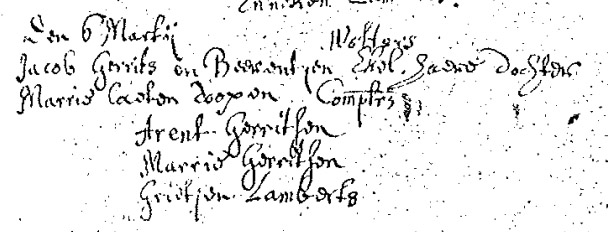 Den 6 Martij
Wolters
Jacob Gerrits en Beerentjen Ekel haere Dochter
Marrie laeten doopen Compters
Arent Gerritsen
Marrie Gerritsen
Grietjen Lamberts